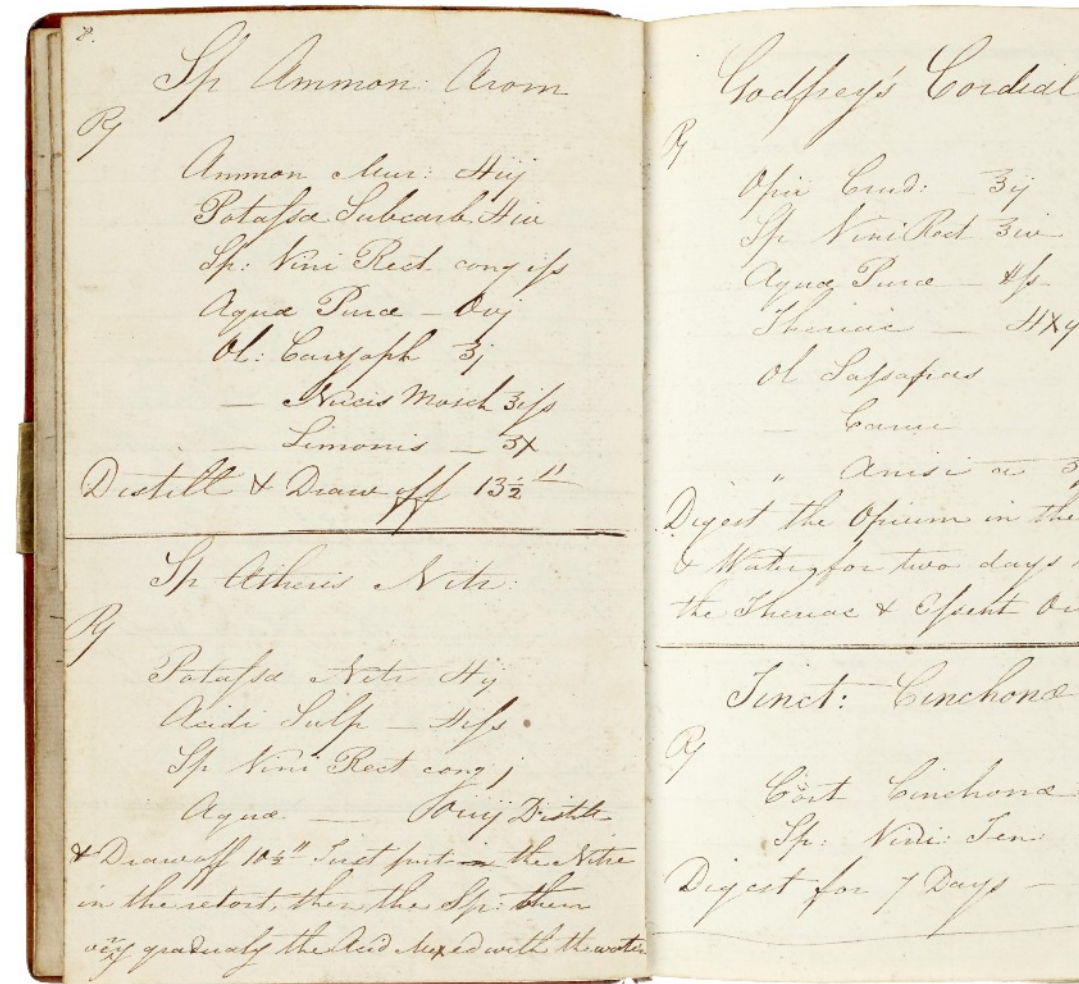 8.
Sp Ammon: Arom
Rx
Ammon Mur: ℔iij
Potassæ Subcarb ℔iv
Sp: Vini Rect cong ifs
Aquæ Puræ – Ovj
Ol: Caryoph ʒj
— Nucis Mosch ʒifs
— Limonis — ʒx
Distill & Draw off 13½
Sp Ætheris Nitr:
Rx
Potassæ Nitr ℔ij
Acidi Sulp — ℔ifs
Sp Vini Rect cong j
Aquæ — Distill
& Draw off 10½ First put in the Nitre
in the retort, then the Sp: then
very gradualy the Acid Mixed with the water
Godfrey's Cordial
Rx
Opii Crud: – ʒij
Sp Vini Rect ʒiv
Aquæ Puræ – ℔fs
Theriac —
Ol Sassafras
– Carui
" Anisi a ʒ
Digest the Opium in the
& Water, for two days
the Theriac & Essent
Tinct: Cinchonæ
Rx
Cort Cinchonæ
Sp: Vini: Ten:
Digest for 7 Days —